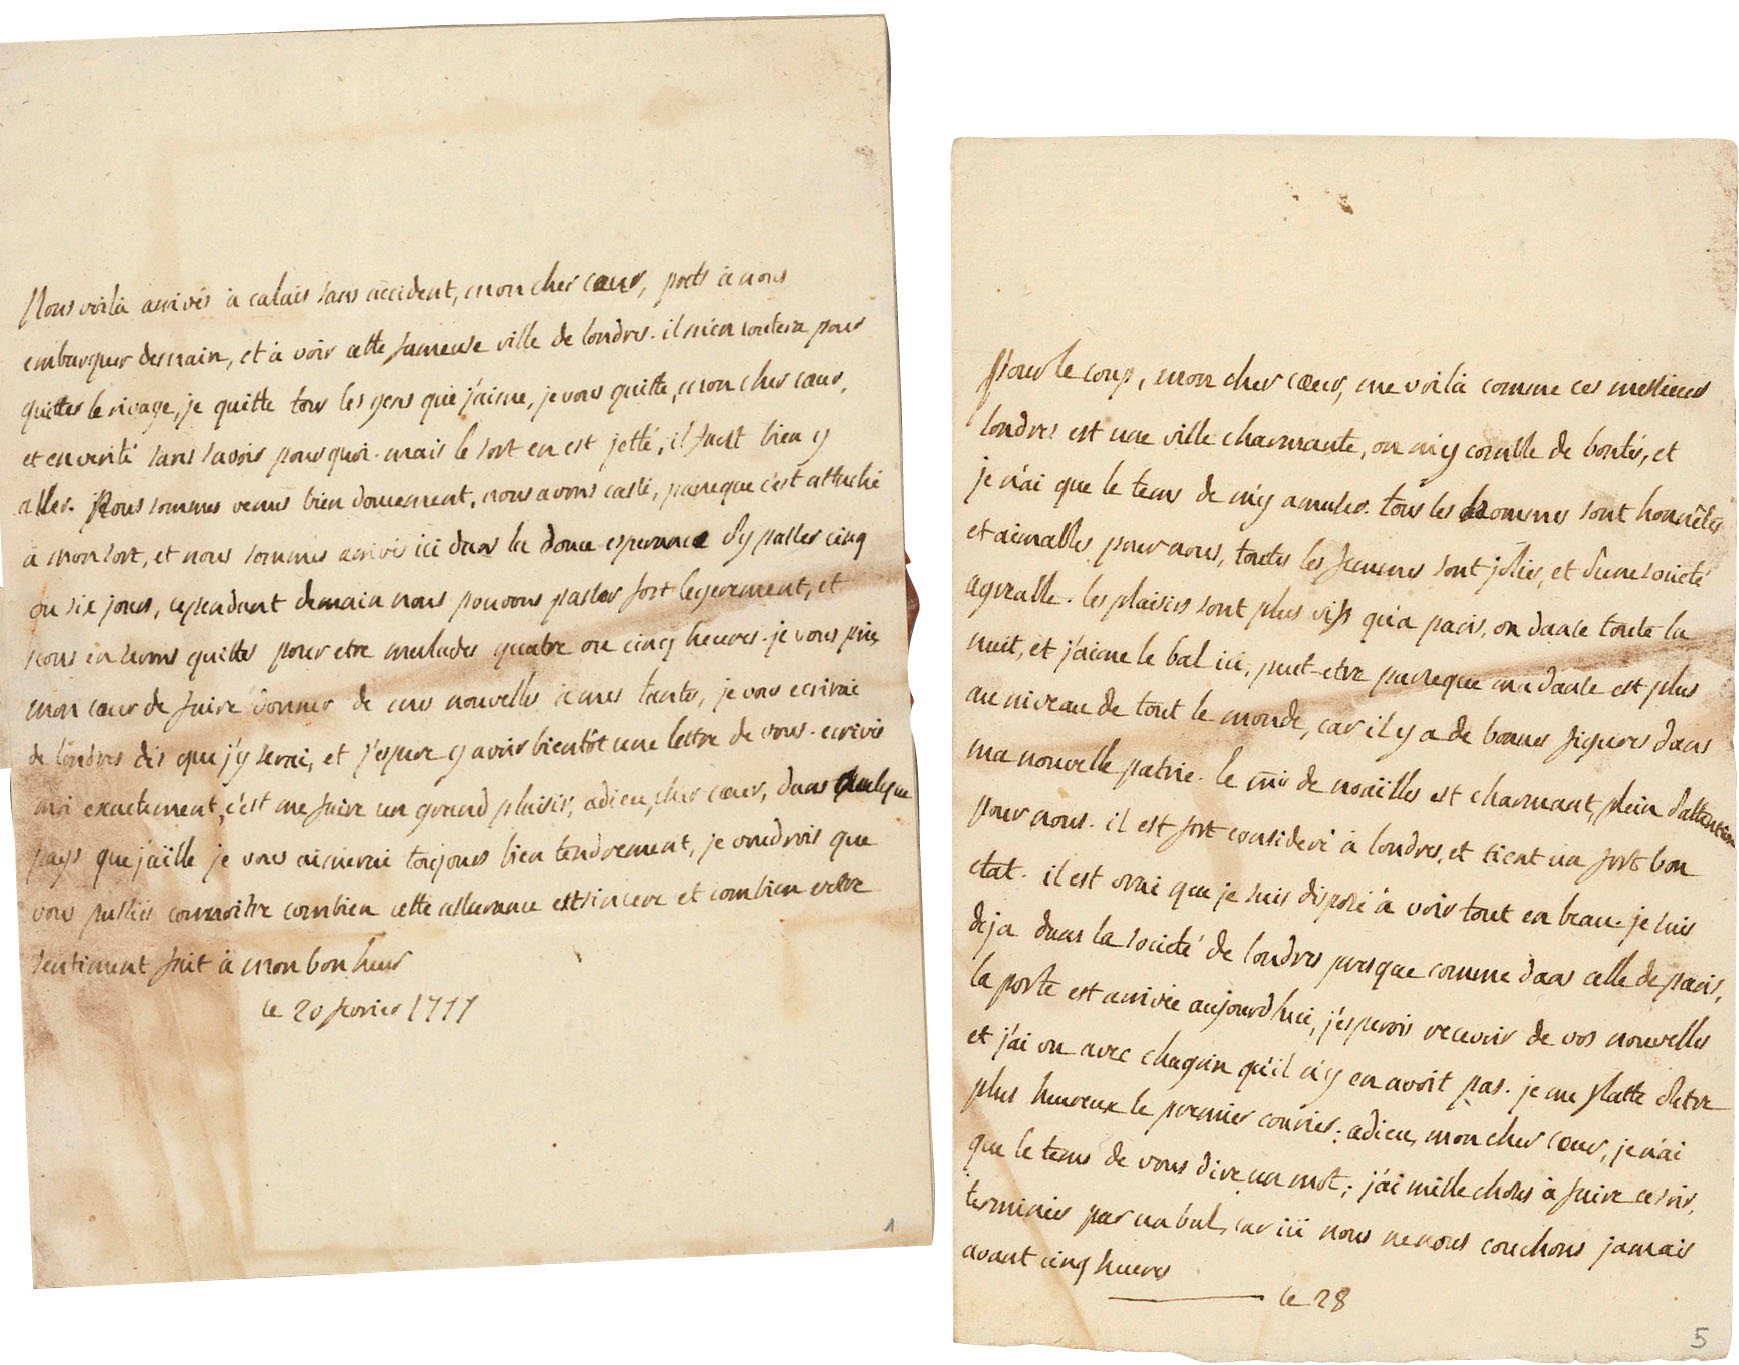 Nous voila arrivés à calais sans accident, mon cher cœur, prets à nous
embarquer demain, et à voir cette fameuse ville de londres. il m'en coutera pour
quitter le rivage, je quitte tous les gens que j'aime, je vous quitte, mon cher cœur,
et en verité sans savoir pourquoi. mais le sort en est jetté, il faut bien y
aller. Nous sommes venus bien doucement, nous avons cassé, parceque c'est attaché
à mon sort, et nous sommes arrivés ici dans la douce esperance d'y passer cinq
ou six jours, cependant demain nous pouvons passer fort legerement, et
nous en serons quittes pour etre malades quatre ou cinq heures. je vous prie,
mon cœur de faire donner de mes nouvelles à mes tantes, je vous ecrirai
de londres dès que j'y serai, et j'espere y avoir bientôt une lettre de vous. ecrivés
moi exactement, c'est me faire un grand plaisir, adieu, cher cœur, dans quelque
pays que j'aïlle je vous aimerai toujours bien tendrement, je voudrois que
vous pussiés connoitre combien cette assurance est sincere et combien votre
sentiment fait à mon bonheur
le 20 fevrier 1777
1
Pour le coup, mon cher cœur, me voilà comme ces messieurs
londres est une ville charmante, on m'y comble de bontés, et
je n'ai que le tems de m'y amuser. tous les hommes sont honnêtes
et aimables pour nous, toutes les femmes sont jolies, et d'une societé
agreable. les plaisirs sont plus vifs qu'a paris, on danse toute la
nuit, et j'aime le bal ici, peut-etre parceque ma danse est plus
au niveau de tout le monde, car il y a de bonnes figures dans
ma nouvelle patrie. le mis de noaïlles est charmant, plein d'attention
pour nous. il est fort consideré à londres, et tient un fort bon
etat. il est vrai que je suis disposé à voir tout en beau. je suis
deja dans la societé de londres presque comme dans celle de paris,
la poste est arrivée aujourd'hui, j'esperois recevoir de vos nouvelles
et j'ai vu avec chagrin qu'il n'y en avoit pas. je me flatte d'etre
plus heureux le premier courier. adieu, mon cher cœur, je n'ai
que le tems de vous dire un mot; j'ai mille choses à faire ce soir,
terminées par un bal, car ici nous ne nous couchons jamais
avant cinq heures
le 28
5